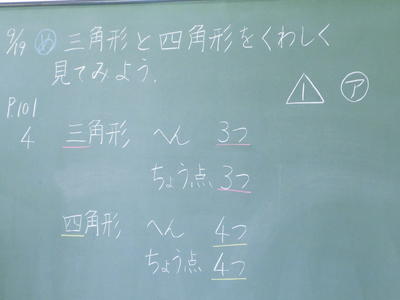 9/19 め 三角形と四角形をくわしく
見てみよう.
1 ア
P.101
4 三角形 へん 3つ
ちょう点 3つ
四角形 へん 4つ
ちょう点 4つ